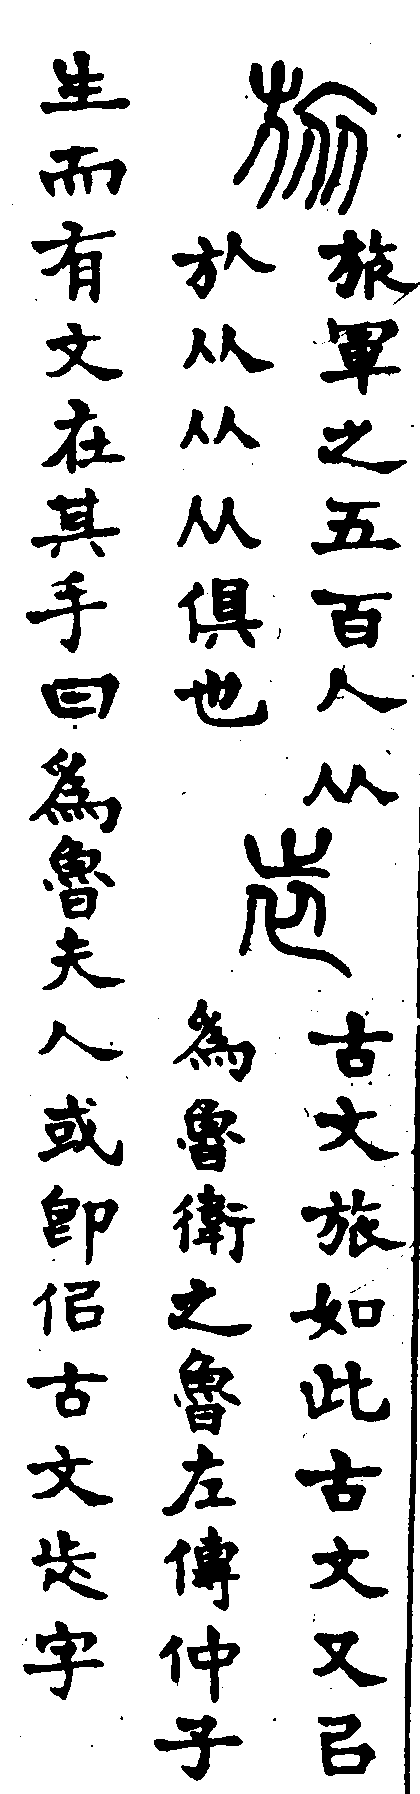 旅
旅軍之五百人从
㫃从从从俱也
𣥐
古文旅如此古文又㠯
為魯衛之魯左傳仲子
生而有文在其手曰為魯夫人或卽佀古文𣥐字